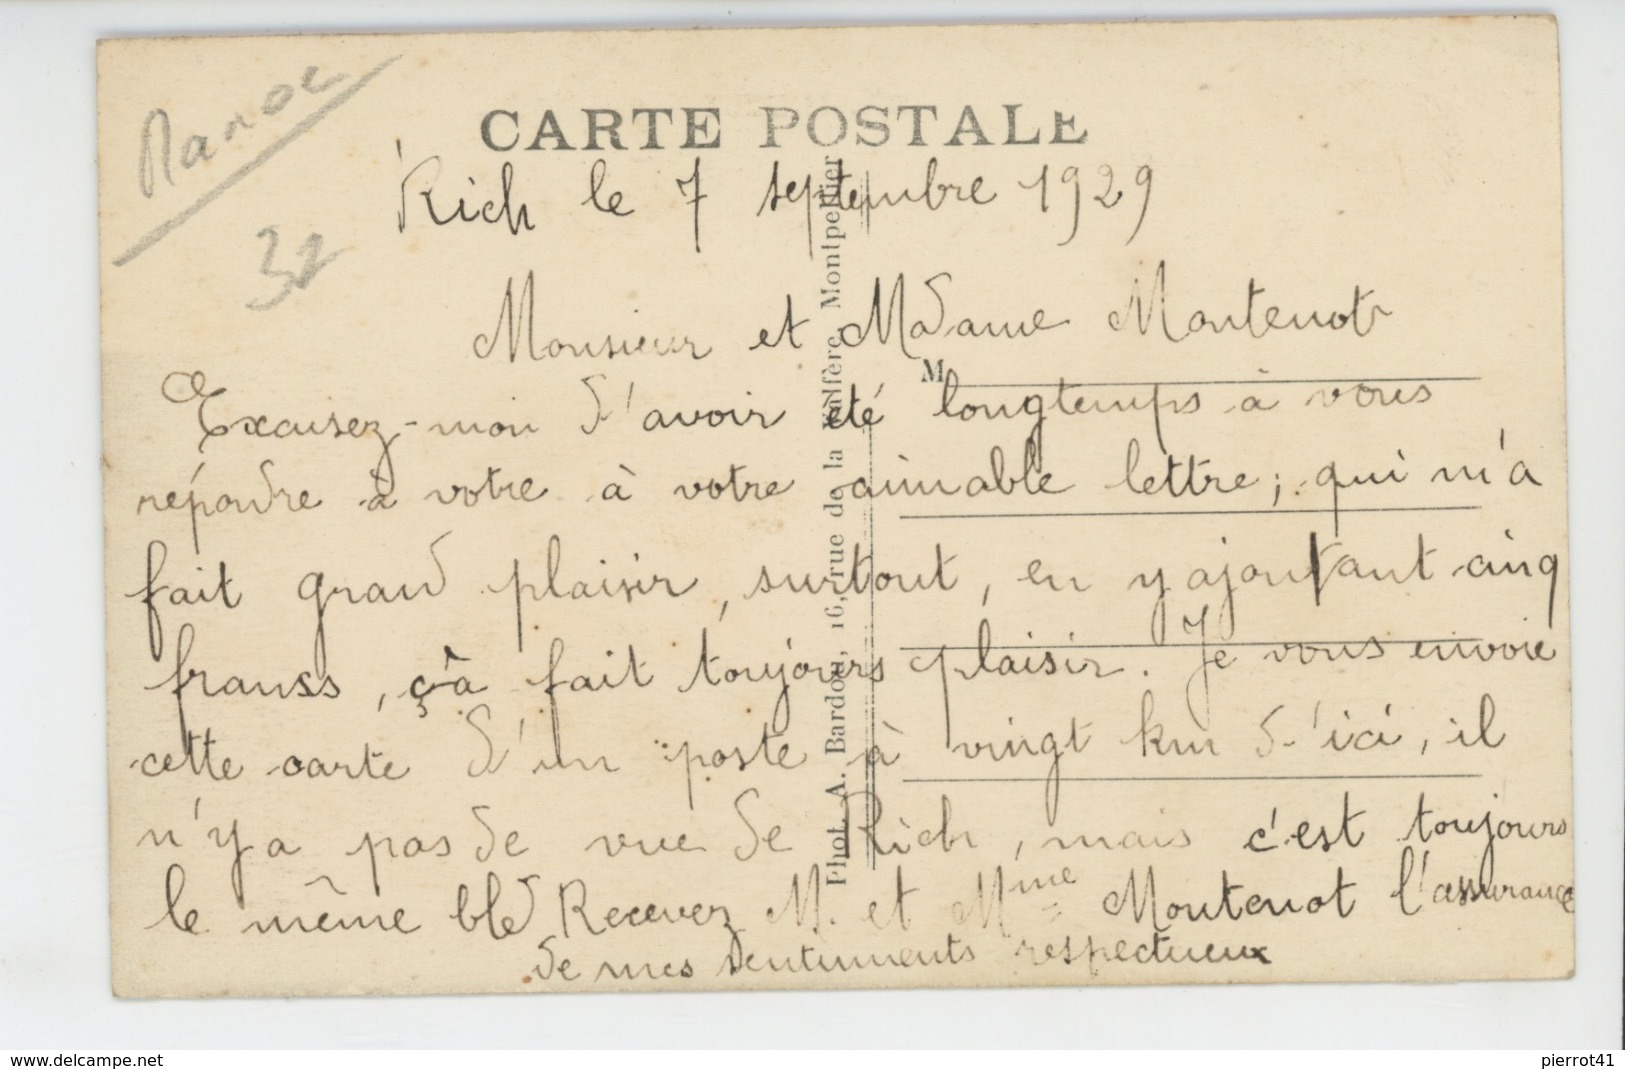 Maroc
32
CARTE POSTALE
Rich le 7 septembre 1929
Monsieur et Madame Montenot
M
Excusez-moi d'avoir été longtemps à vous
répondre à votre à votre aimable lettre; qui m'a
fait grand plaisir, surtout, en y ajoutant cinq
franss, çà fait toujours plaisir. Je vous envoie
cette carte d'un poste à vingt km d'ici, il
n'y a pas de vue de Rich, mais c'est toujours
le même bled Recevez M. et Mme Montenot l'assurance
de mes sentiments respectueux
Phot. A. Bardou, 16, rue de la Valfère, Montpellier
www.delcampe.net
pierrot41